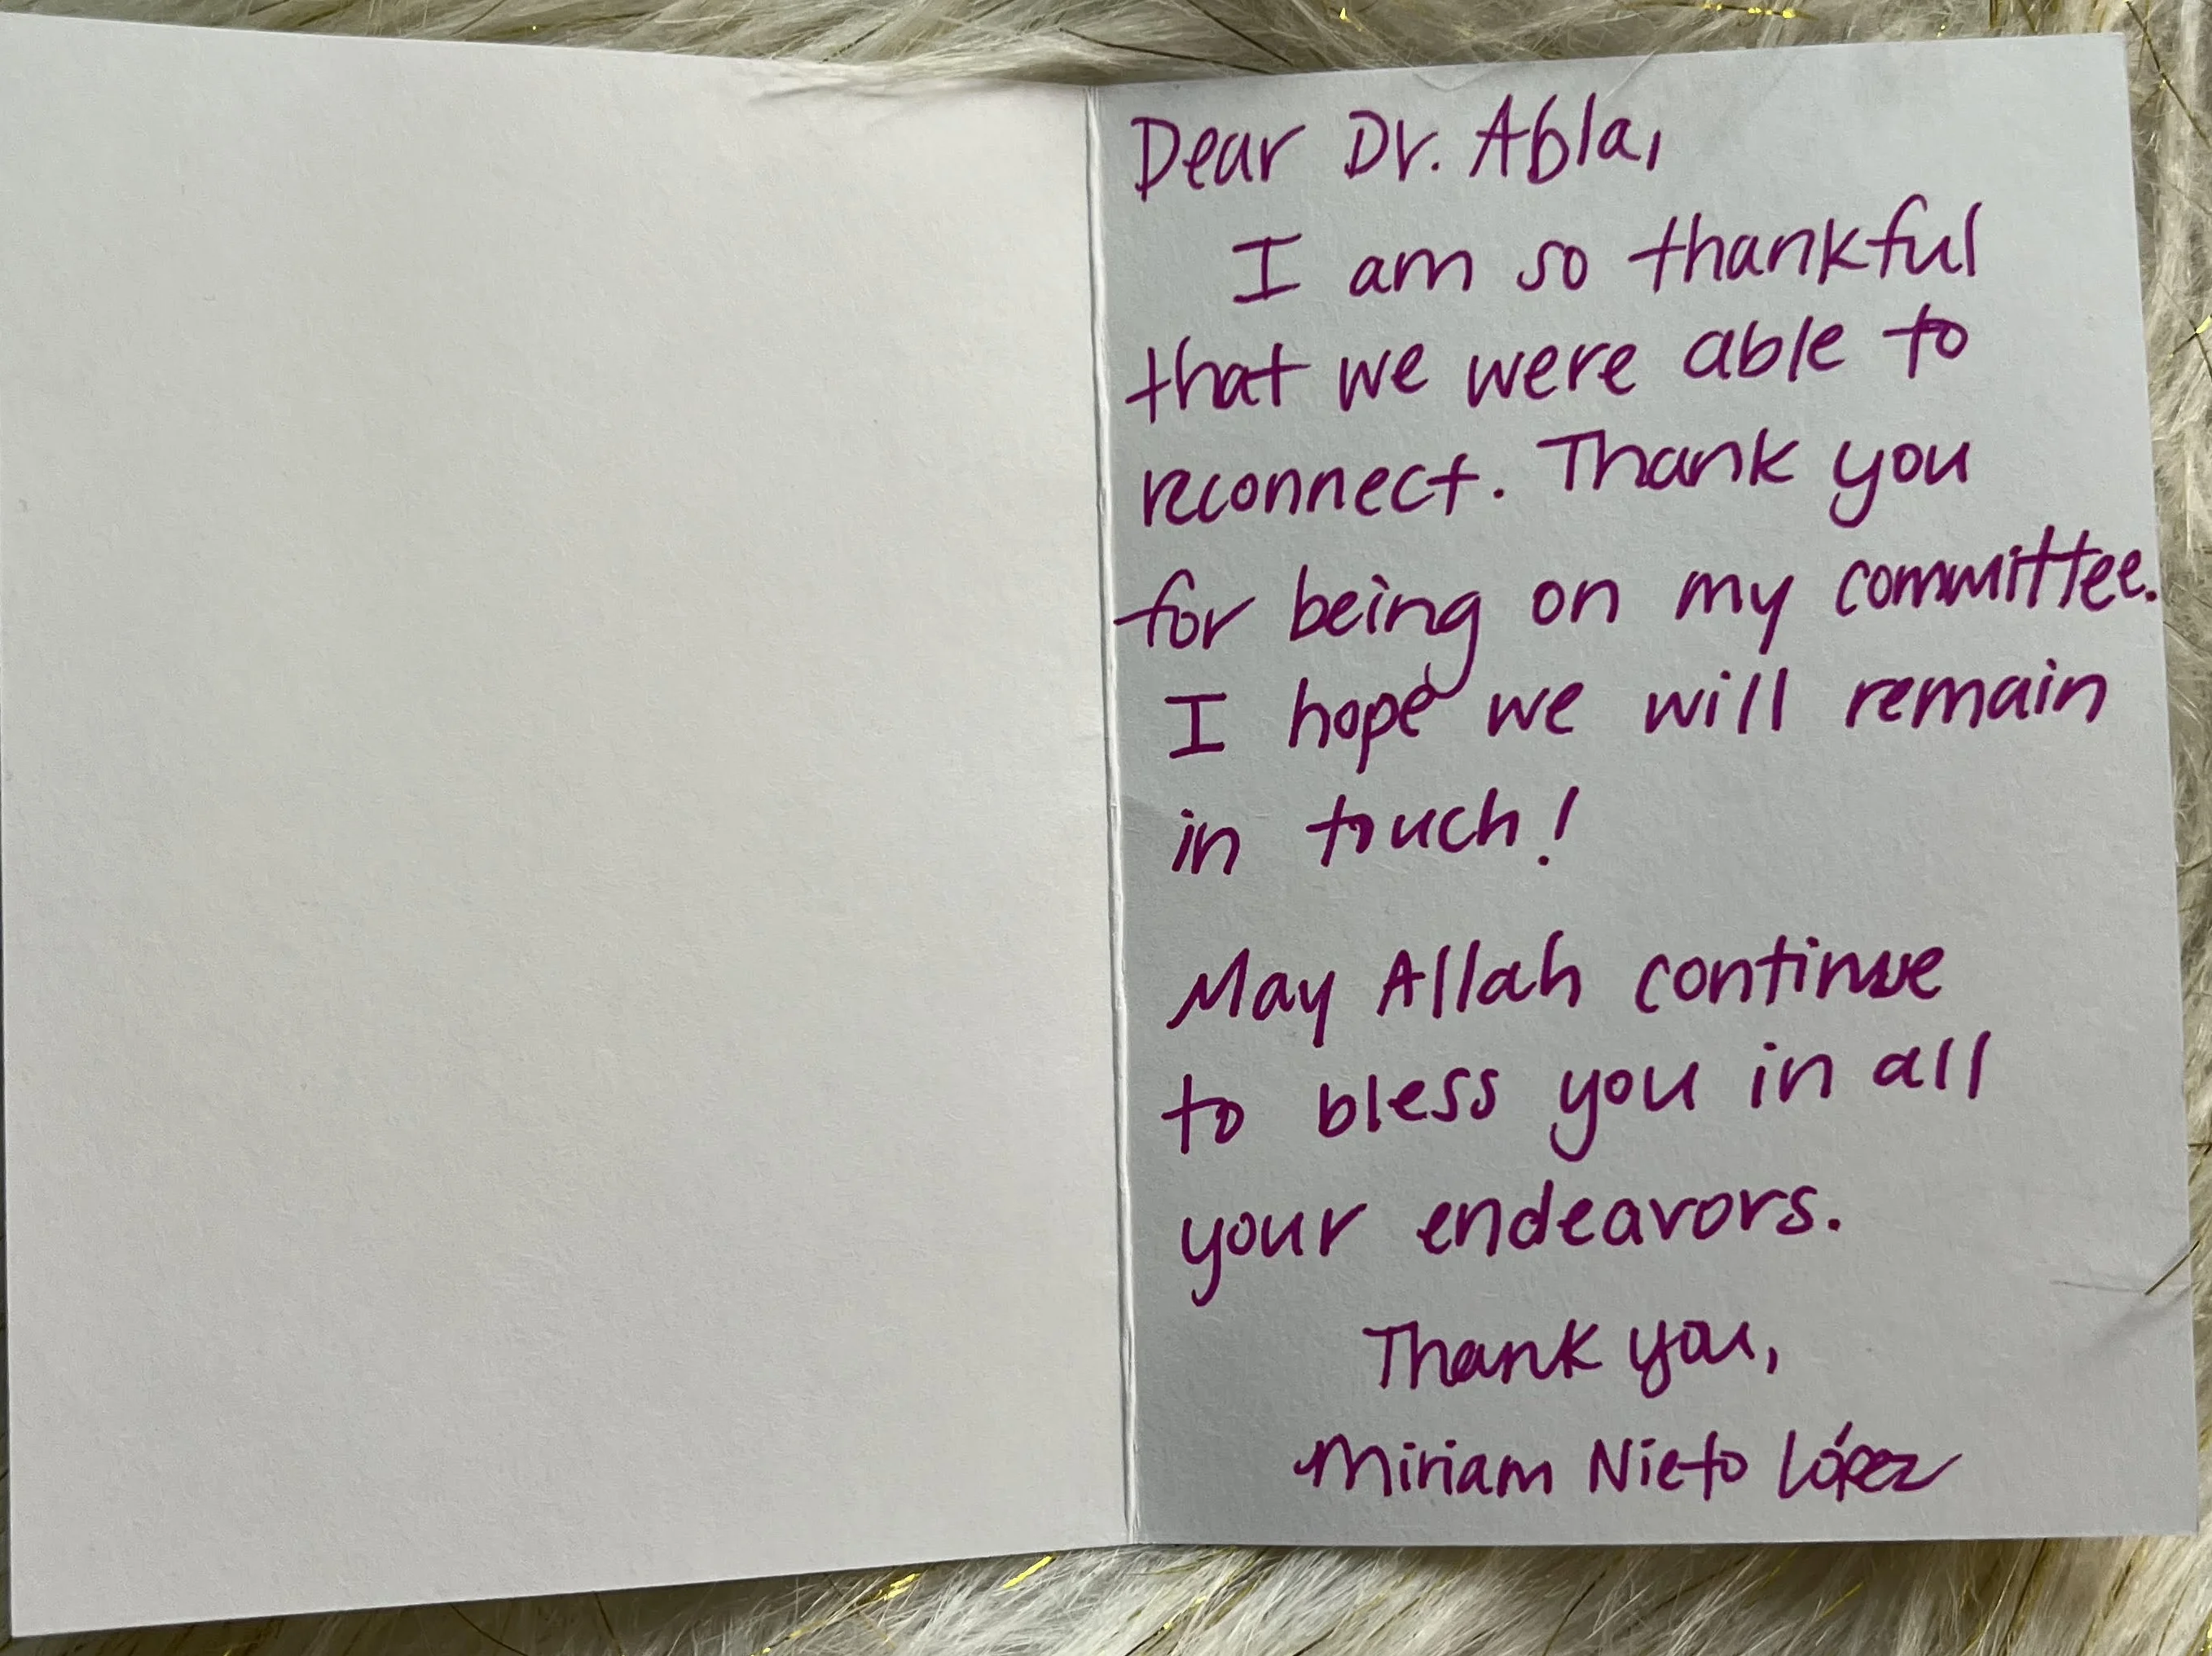 Dear Dr. Abla,
I am so thankful
that we were able to
reconnect. Thank you
for being on my committee.
I hope we will remain
in touch!
May Allah continue
to bless you in all
your endeavors.
Thank you,
Miriam Nieto López